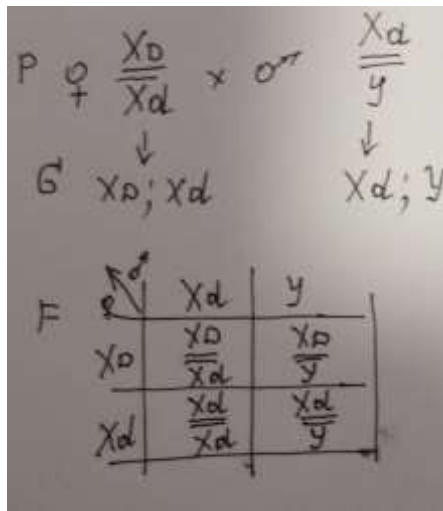 P ♀ XD/Xd × ♂ Xd/y
G XD; Xd Xd; y
F ♀ ♂ Xd y
XD XD/Xd XD/y
Xd Xd/Xd Xd/y